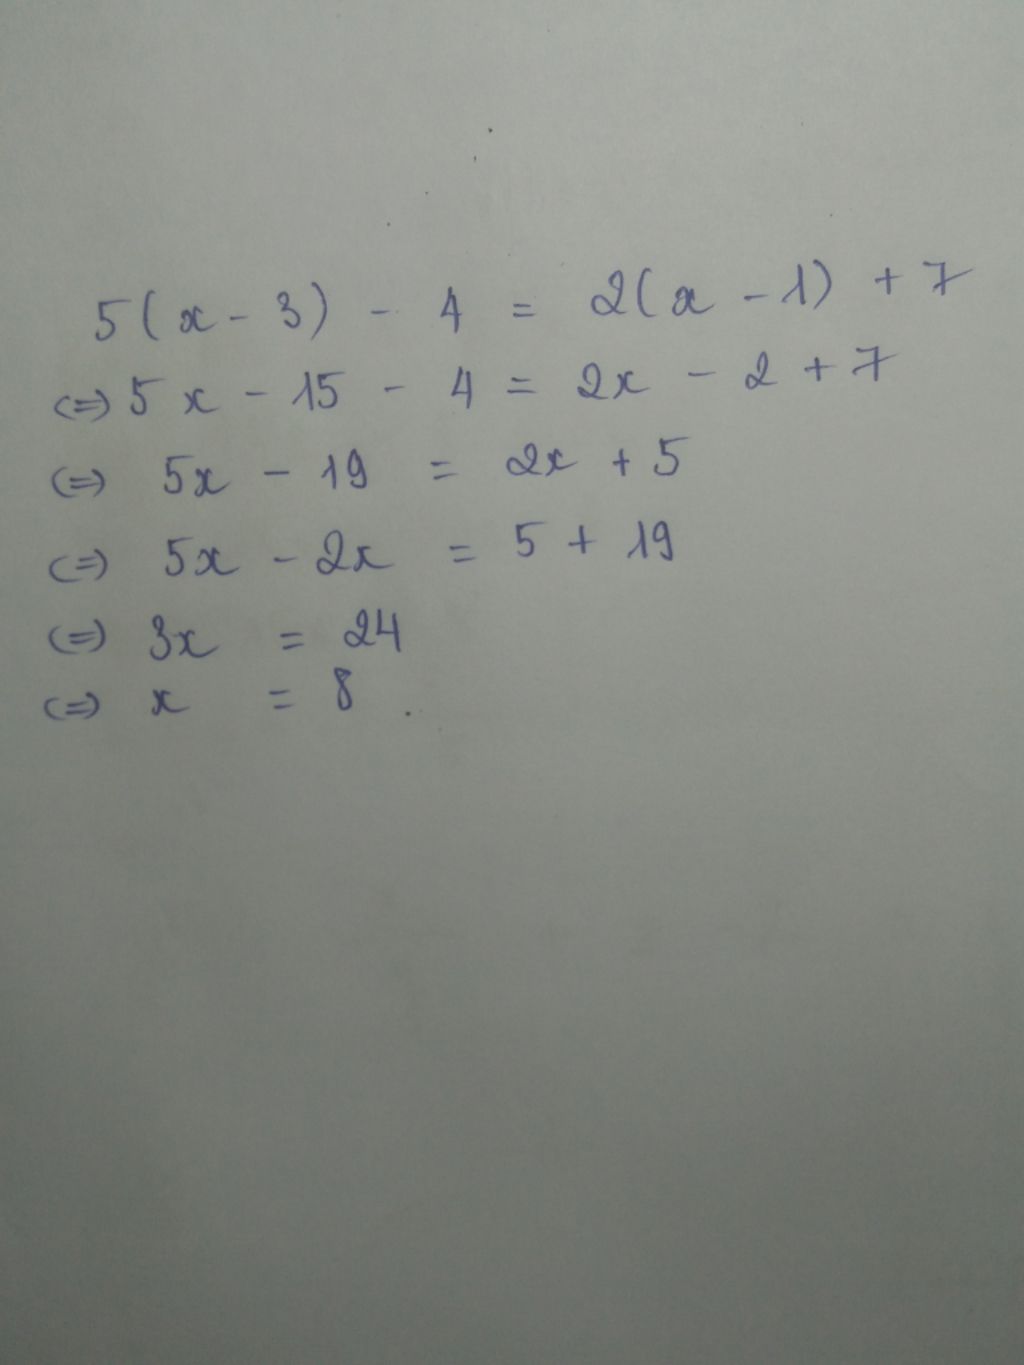 5(x - 3) - 4 = 2(x - 1) + 7
<=> 5x - 15 - 4 = 2x - 2 + 7
<=> 5x - 19 = 2x + 5
<=> 5x - 2x = 5 + 19
<=> 3x = 24
<=> x = 8